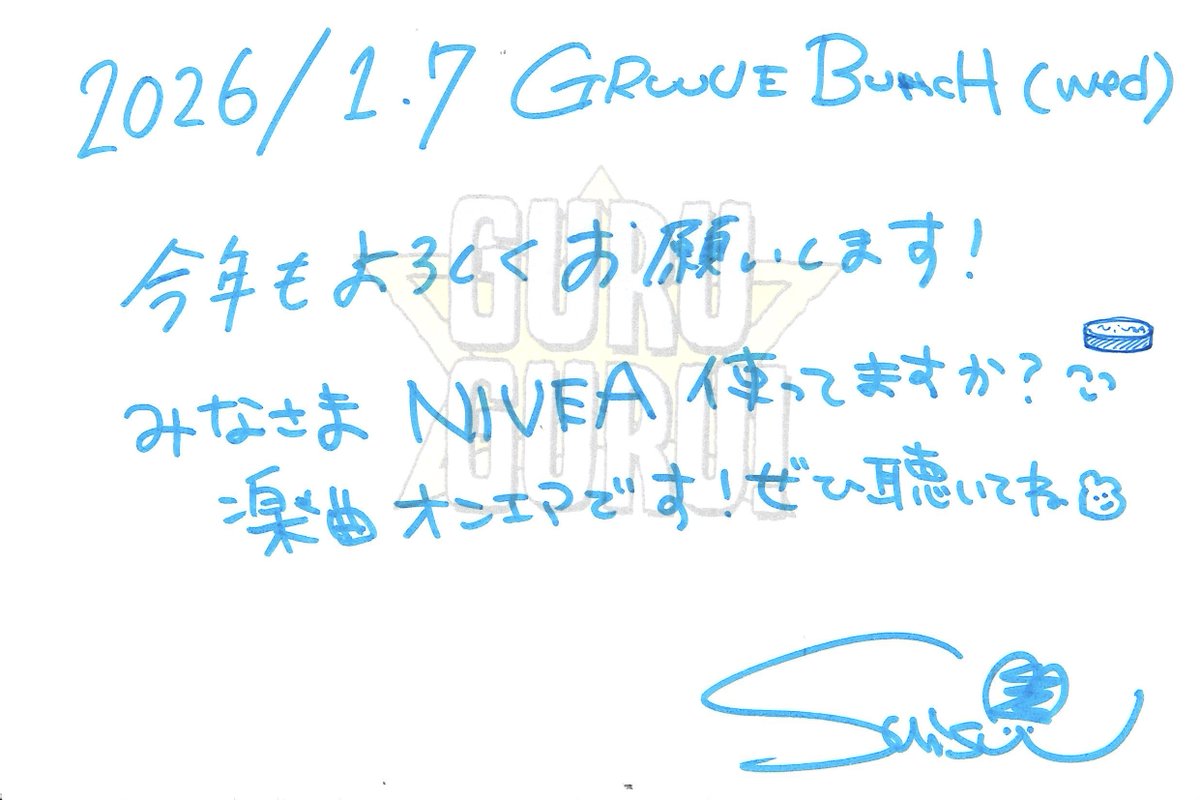 2026/1.7 GROOVE BUNCH (wed)
GURU GURU!
今年もよろしくお願いします!
みなさま NIVEA 使ってますか?
楽曲オンエアです!ぜひ聴いてね